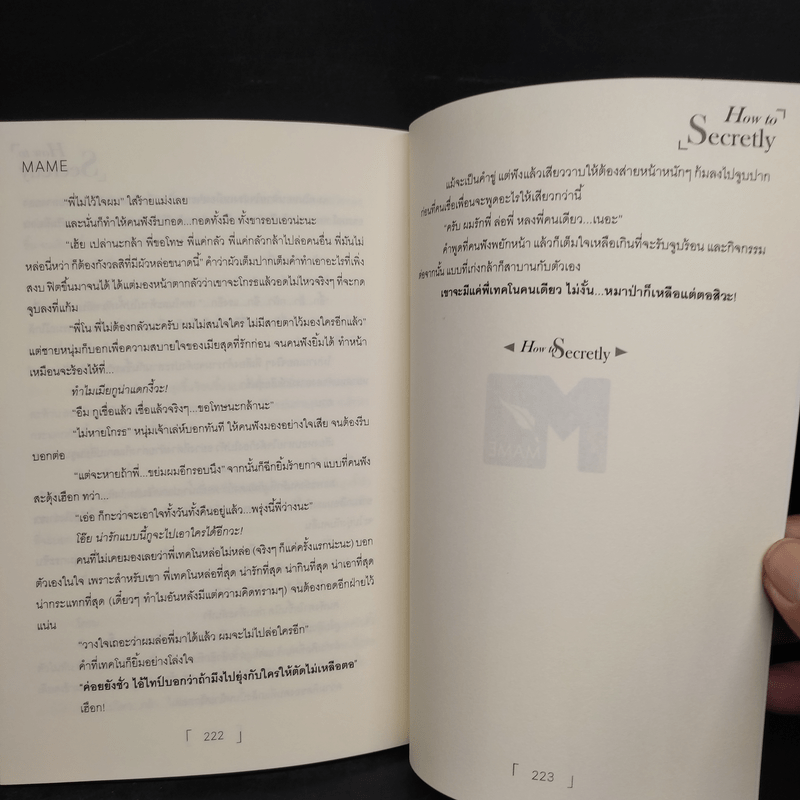 MAME
"พี่ไม่ไว้ใจผม" ใส่ร้ายแม่งเลย
และนั่นก็ทำให้คนฟังรีบกอด...กอดทั้งมือ ทั้งขารอบเอวน่ะนะ
"เฮ้ย เปล่านะกล้า พี่ขอโทษ พี่แค่กลัว พี่แค่กลัวกล้าไปล่อคนอื่น พี่มันไม่
หล่อนี่หว่า ก็ต้องกังวลสิที่มีผัวหล่อขนาดนี้" คำว่าผัวเต็มปากเต็มคำทำเอาอะไรที่เพิ่ง
สงบ ฟิตขึ้นมาจนได้ ได้แต่มองหน้าตากลัวว่าเขาจะโกรธแล้วอดไม่ไหวจริงๆ ที่จะกด
จูบลงที่แก้ม
"พี่โน พี่ไม่ต้องกลัวนะครับ ผมไม่สนใจใคร ไม่มีสายตาไว้มองใครอีกแล้ว"
แต่ชายหนุ่มก็บอกเพื่อความสบายใจของเมียสุดที่รักก่อน จนคนฟังยิ้มได้ ทำหน้า
เหมือนจะร้องไห้ที่...
ทำไมเมียกูน่าแดกงี้วะ!
"อืม กูเชื่อแล้ว เชื่อแล้วจริงๆ...ขอโทษนะกล้านะ"
"ไม่หายโกรธ" หนุ่มเจ้าเล่ห์บอกทันที ให้คนฟังมองอย่างใจเสีย จนต้องรีบ
บอกต่อ
"แต่จะหายถ้าพี่...ขย่มผมอีกรอบนึง" จากนั้นก็ฉีกยิ้มร้ายกาจ แบบที่คนฟัง
สะดุ้งเฮือก ทว่า...
"เอ่อ ก็กะว่าจะเอาทั้งวันทั้งคืนอยู่แล้ว...พรุ่งนี้พี่ว่างนะ"
โอ๊ย น่ารักแบบนี้กูจะไปเอาใครได้อีกวะ!
คนที่ไม่เคยมองเลยว่าพี่เทคโนหล่อไม่หล่อ (จริงๆ ก็แค่ครั้งแรกน่ะนะ) บอก
ตัวเองในใจ เพราะสำหรับเขา พี่เทคโนหล่อที่สุด น่ารักที่สุด น่ากินที่สุด น่าเอาที่สุด
น่ากระแทกที่สุด (เดี๋ยวๆ ทำไมอันหลังมีแต่ความคิดทรามๆ) จนต้องกอดอีกฝ่ายไว้
แน่น
"วางใจเถอะว่าผมล่อพี่มาได้แล้ว ผมจะไม่ไปล่อใครอีก"
คำที่เทคโนก็ยิ้มอย่างโล่งใจ
"ค่อยยังชั่ว ไอ้ไทป์บอกว่าถ้ามึงไปยุ่งกับใครให้ตัดไม่เหลือตอ"
เฮือก!
「 222 」
How to
Secretly
แม้จะเป็นคำขู่ แต่ฟังแล้วเสียววาบให้ต้องส่ายหน้าหนักๆ ก้มลงไปจูบปาก
ก่อนที่คนเชื่อเพื่อนจะพูดอะไรให้เสียวกว่านี้
"ครับ ผมรักพี่ ล่อพี่ หลงพี่คนเดียว...เนอะ"
คำพูดที่คนฟังพยักหน้า แล้วก็เต็มใจเหลือเกินที่จะรับจูบร้อน และกิจกรรม
ต่อจากนั้น แบบที่เก่งกล้าก็สาบานกับตัวเอง
เขาจะมีแค่พี่เทคโนคนเดียว ไม่งั้น...หมาป่าก็เหลือแต่ตอสิวะ!
How to Secretly
MAME
「 223 」